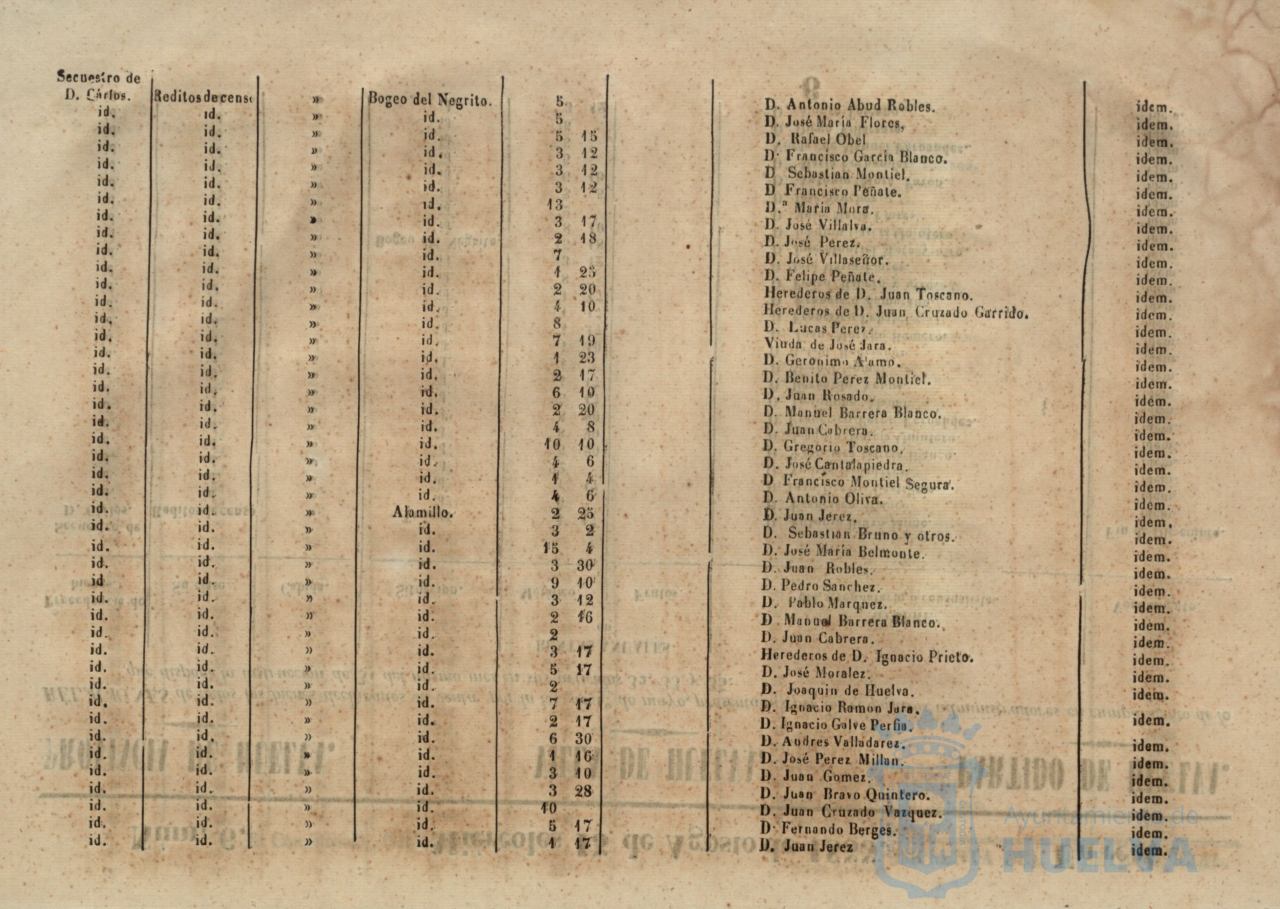 Secuestro de
D. Cárlos. Reditos de censo » Bogeo del Negrito. 5 D. Antonio Abud Robles. idem.
id. id. » id. 5 D. José María Flores. idem.
id. id. » id. 5 15 D. Rafael Obel idem.
id. id. » id. 3 12 D. Francisco García Blanco. idem.
id. id. » id. 3 12 D Sebastian Montiel. idem.
id. id. » id. 3 12 D Francisco Peñate. idem.
id. id. » id. 13 D.ª María Mora. idem.
id. id. » id. 3 17 D. José Villalva. idem.
id. id. » id. 2 18 D. José Perez. idem.
id. id. » id. 7 D. José Villaseñor. idem.
id. id. » id. 1 25 D. Felipe Peñate. idem.
id. id. » id. 2 20 Herederos de D. Juan Toscano. idem.
id. id. » id. 4 10 Herederos de D. Juan Cruzado Garrido. idem.
id. id. » id. 8 D. Lucas Perez. idem.
id. id. » id. 7 19 Viuda de José Jara. idem.
id. id. » id. 1 23 D. Geronimo Alamo. idem.
id. id. » id. 2 17 D. Benito Perez Montiel. idem.
id. id. » id. 6 10 D. Juan Rosado. idem.
id. id. » id. 2 20 D. Manuel Barrera Blanco. idem.
id. id. » id. 4 8 D. Juan Cabrera. idem.
id. id. » id. 10 10 D. Gregorio Toscano. idem.
id. id. » id. 4 6 D. José Cantalapiedra. idem.
id. id. » id. 1 4 D Francisco Montiel Segura. idem.
id. id. » id. 4 6 D. Antonio Oliva. idem.
id. id. » Alamillo. 2 25 D. Juan Jerez. idem.
id. id. » id. 3 2 D. Sebastian Bruno y otros. idem.
id. id. » id. 15 4 D. José María Belmonte. idem.
id. id. » id. 3 30 D. Juan Robles. idem.
id id. » id. 9 10 D. Pedro Sanchez. idem.
id. id. » id. 3 12 D. Pablo Marquez. idem.
id. id. » id. 2 16 D Manuel Barrera Blanco. idem.
id. id. » id. 2 D. Juan Cabrera. idem.
id. id. » id. 3 17 Herederos de D. Ignacio Prieto. idem.
id. id. » id. 5 17 D. José Moralez. idem.
id. id. » id. 2 D. Joaquin de Huelva. idem.
id. id. » id. 7 17 D. Ignacio Ramon Jara.
id. id. » id. 2 17 D. Ignacio Galve Perfia. idem.
id. id. » id. 6 30 D. Andres Valladarez. idem.
id. id. » id. 1 16 D. José Perez Millan. idem.
id. id. » id. 3 10 D. Juan Gomez. idem.
id. id. » id. 3 28 D. Juan Bravo Quintero. idem.
id. id. » id. 10 D. Juan Cruzado Vazquez. idem.
id. id. » id. 5 17 D. Fernando Berges. idem.
id. id. » id. 1 17 D. Juan Jerez idem.
Ayuntamiento de
HUELVA